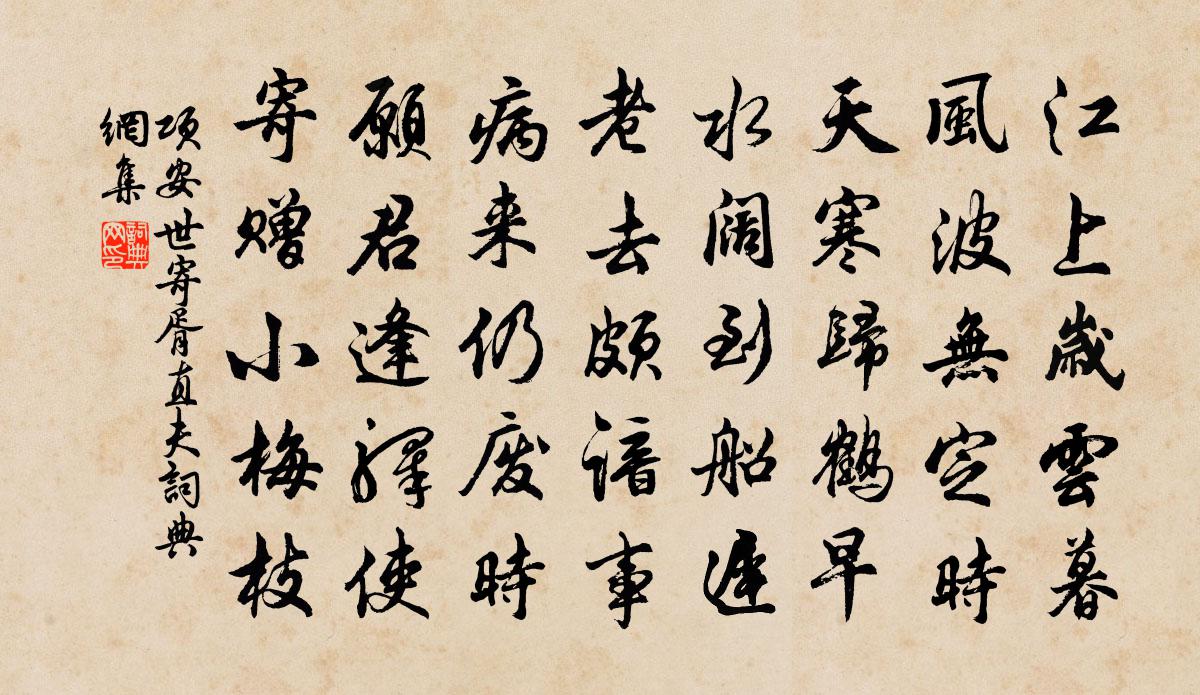 江上歲雲暮
風波無定時
天寒歸鶴早
水闊到船遲
老去頗諳事
病来仍廢時
願君逢驛使
寄贈小梅枝
項安世寄胥直夫詞典
網集
詞典
网印